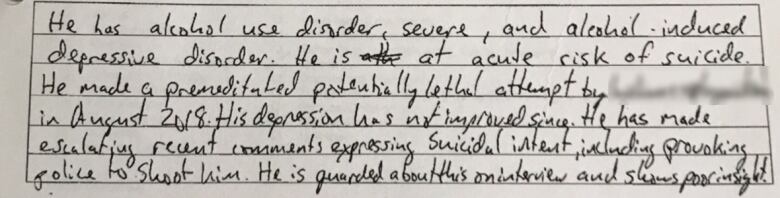 He has alcohol use disorder, severe, and alcohol-induced
depressive disorder. He is at acute risk of suicide.
He made a premeditated potentially lethal attempt by
in August 2018. His depression has not improved since. He has made
escalating recent comments expressing suicidal intent, including provoking
police to shoot him. He is guarded about this on interview and shows poor insight.